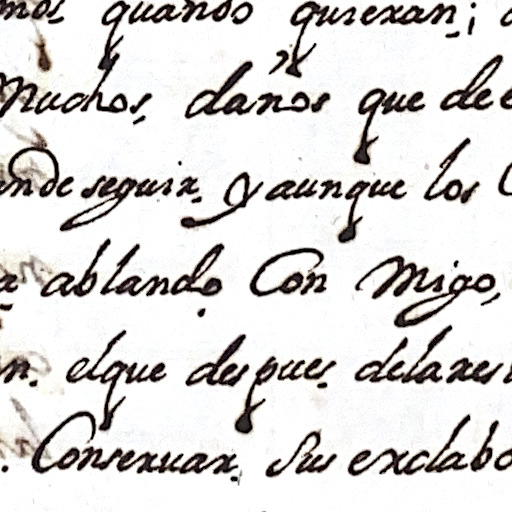 mos quando quieran; a
Muchos, daños que de e
ende seguir. y aunque los
a ablando Con Migo,
n. elque des pues. delares
. Conseruar. sus exclabo